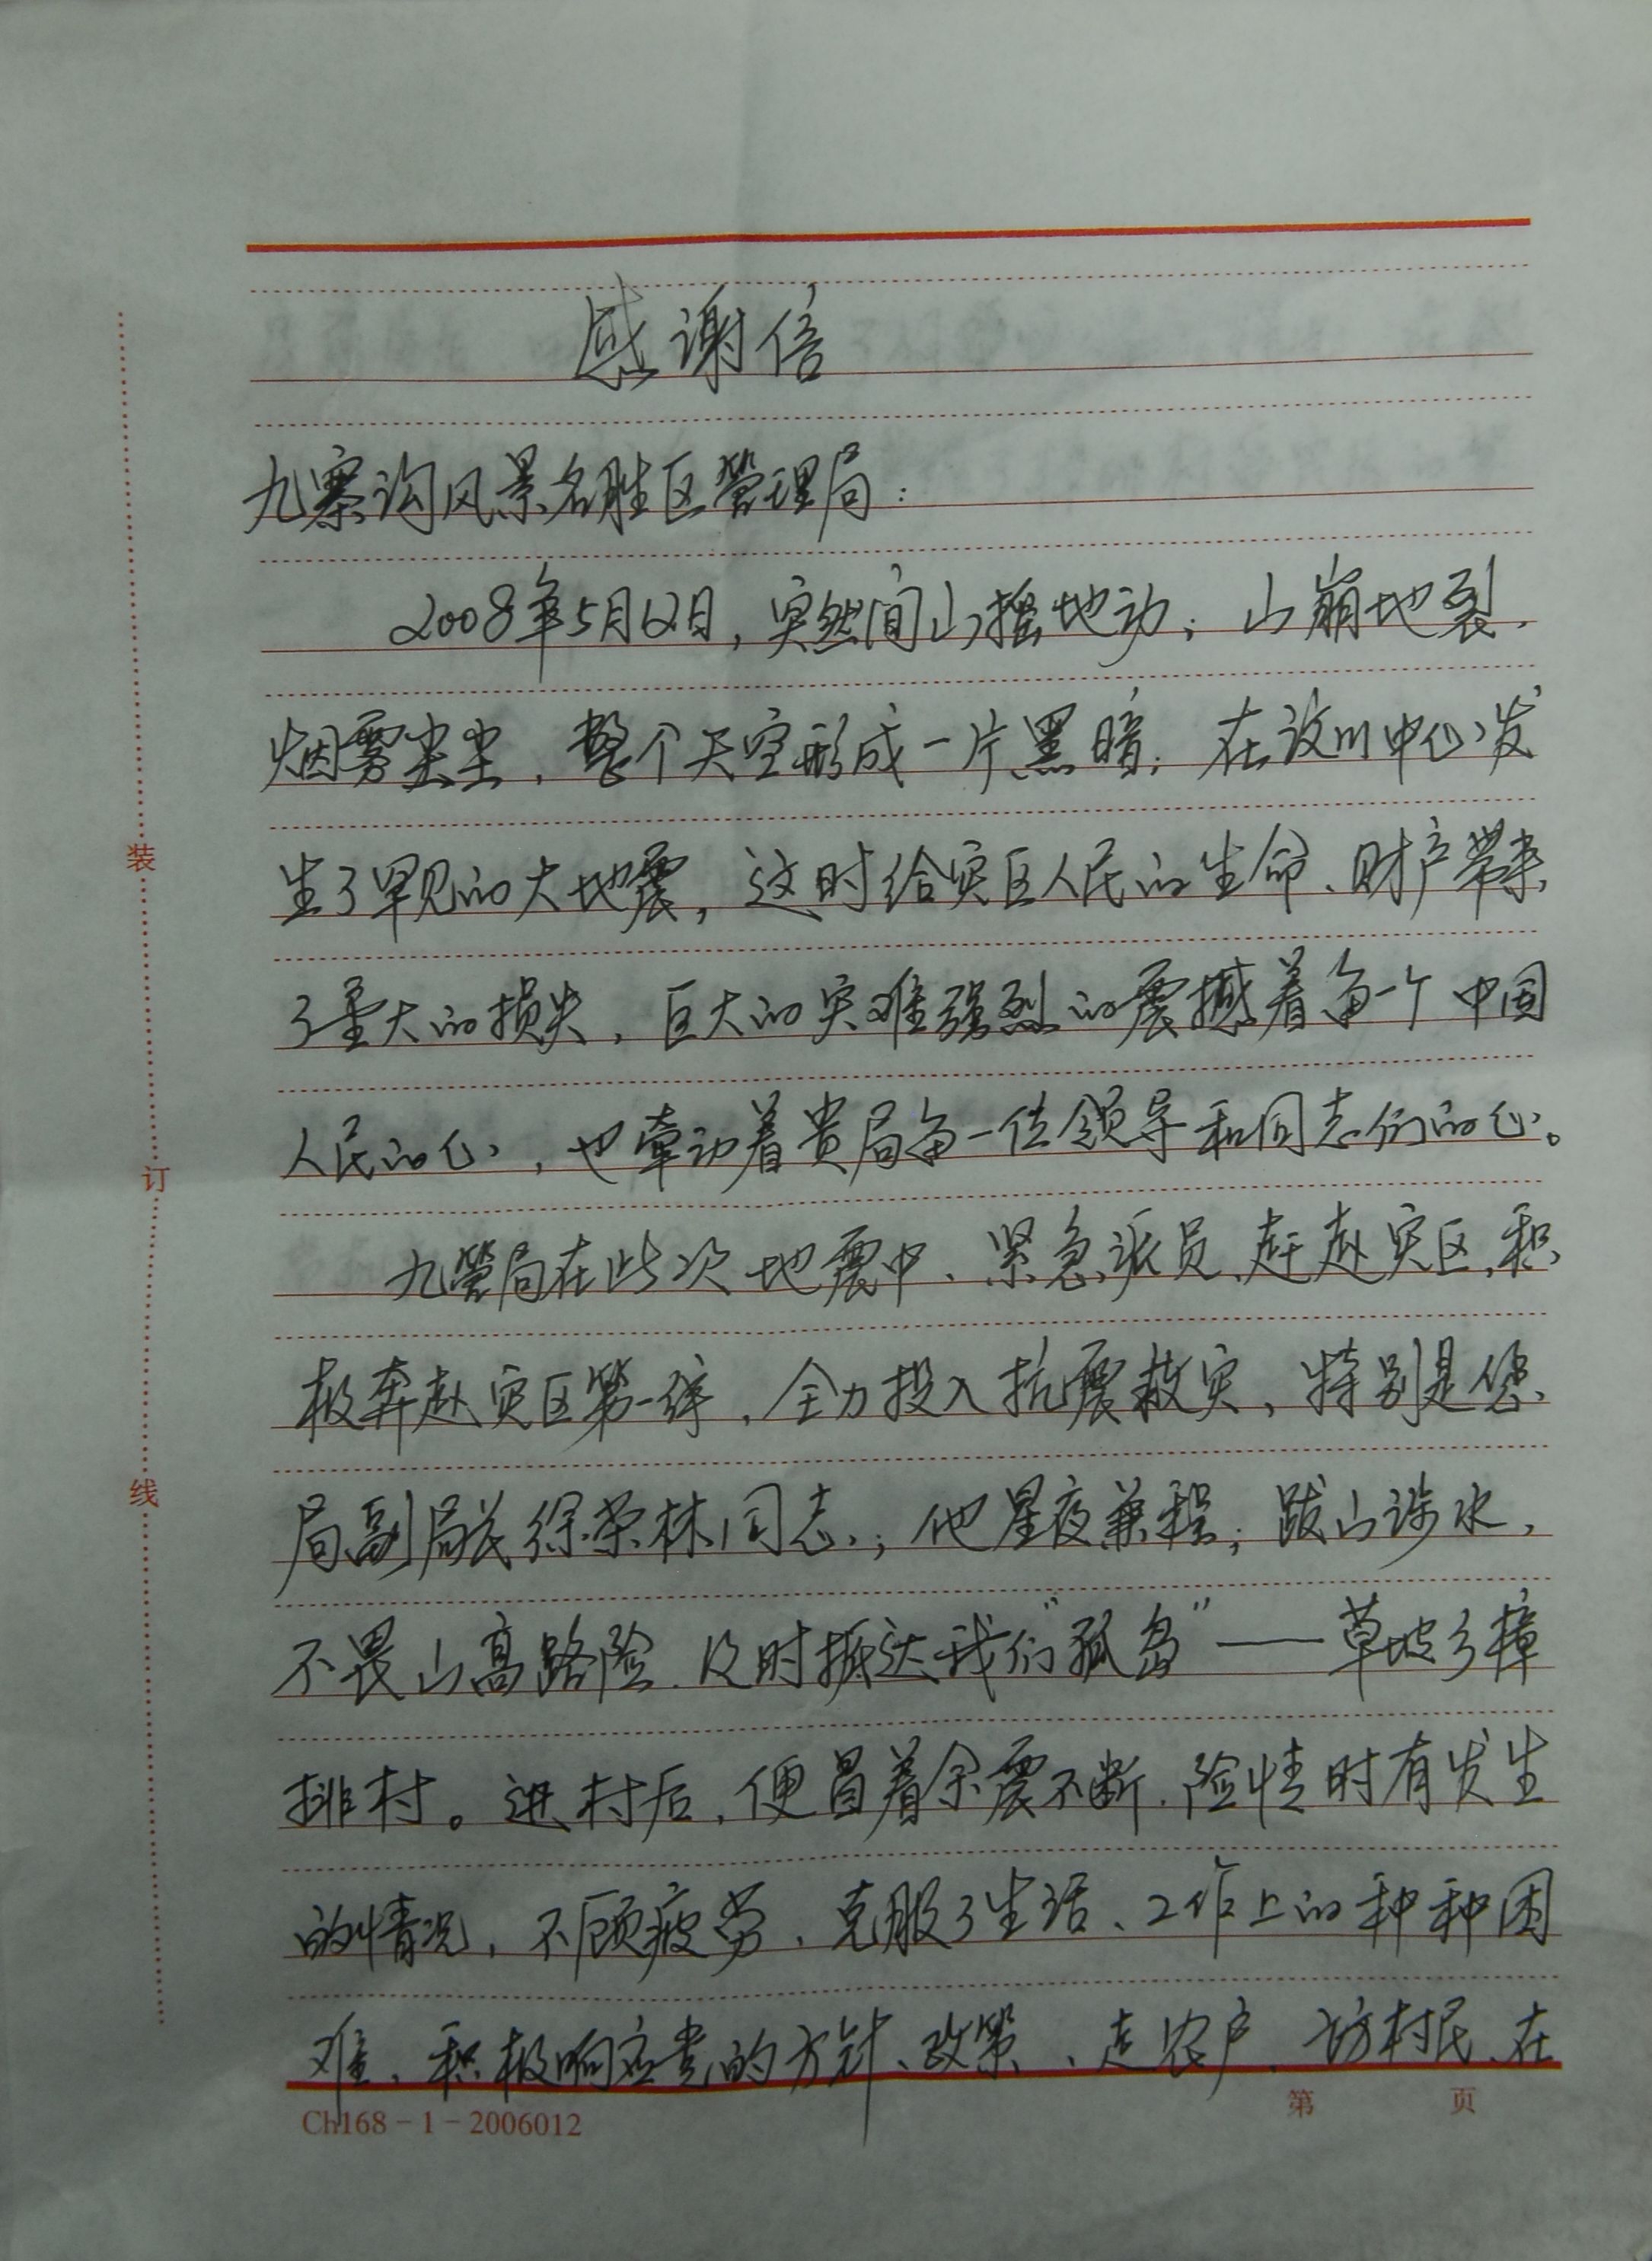 感谢信
九寨沟风景名胜区管理局：
2008年5月12日，突然间山摇地动；山崩地裂，
烟雾尘尘，整个天空形成一片黑暗；在汶川中心发
生了罕见的大地震，这时给灾区人民的生命、财产带来
了重大的损失，巨大的灾难强烈的震撼着每一个中国
人民的心，也牵动着贵局每一位领导和同志们的心。
九管局在此次地震中、紧急派员、赶赴灾区，积
极奔赴灾区第一线，全力投入抗震救灾，特别是您
局副局长徐荣林同志；他星夜兼程；跋山涉水，
不畏山高路险、及时抵达我们“孤岛”——草坡乡樟
排村。进村后，便冒着余震不断、险情时有发生
的情况，不顾疲劳、克服了生活、工作上的种种困
难、积极响应党的方针、政策、走农户、访村民、在
装
订
线
Ch168-1-2006012
第 页